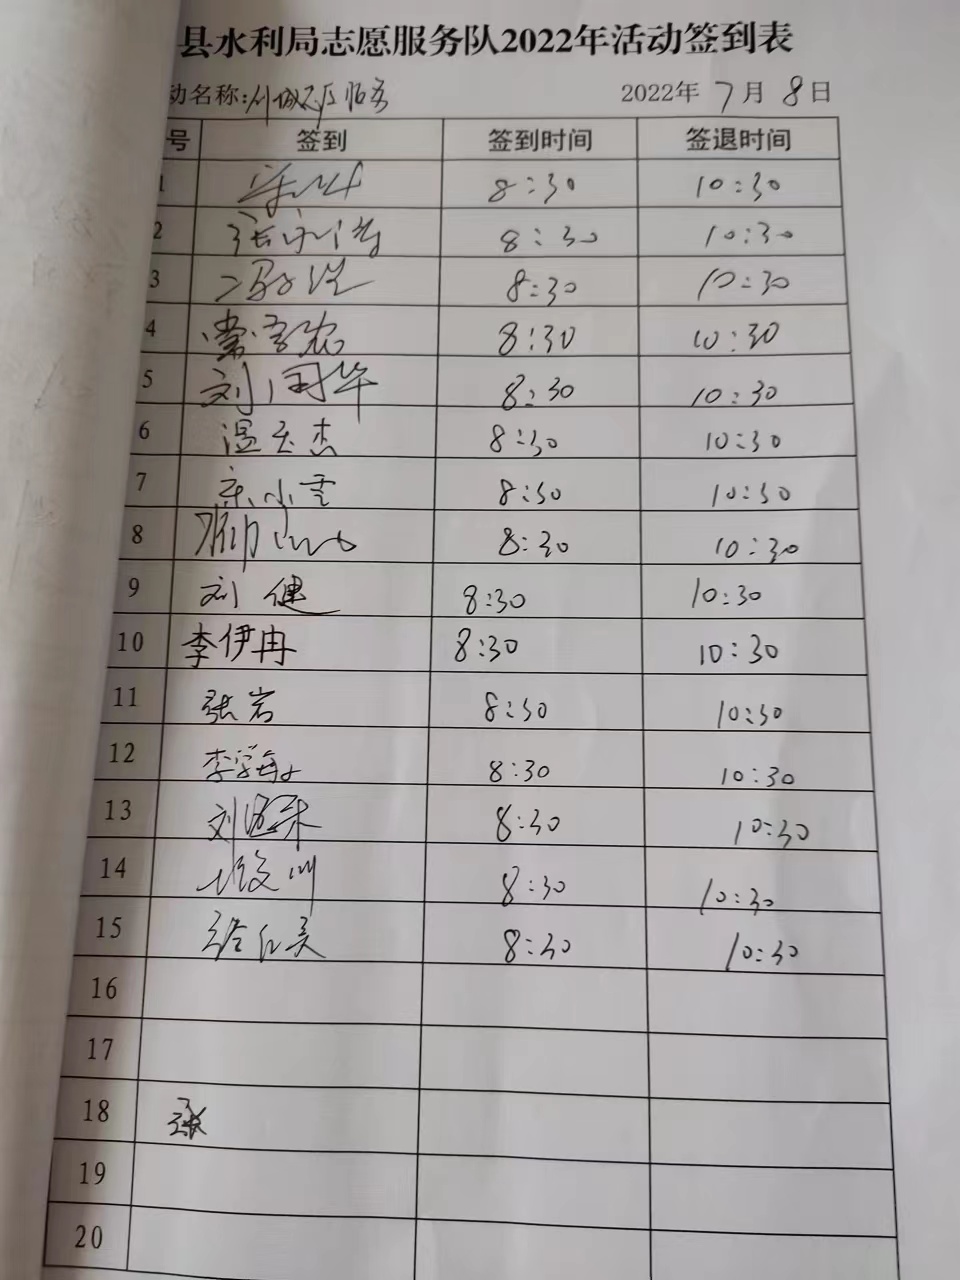 县水利局志愿服务队2022年活动签到表
动名称: 2022年7月8日
号 签到 签到时间 签退时间
1 8:30 10:30
2 8:30 10:30
3 8:30 10:30
4 常 8:30 10:30
5 刘国华 8:30 10:30
6 温玉杰 8:30 10:30
7 宋小雪 8:30 10:30
8 8:30 10:30
9 刘健 8:30 10:30
10 李伊冉 8:30 10:30
11 张岩 8:30 10:30
12 李学敏 8:30 10:30
13 刘 8:30 10:30
14 8:30 10:30
15 8:30 10:30
16
17
18 张
19
20